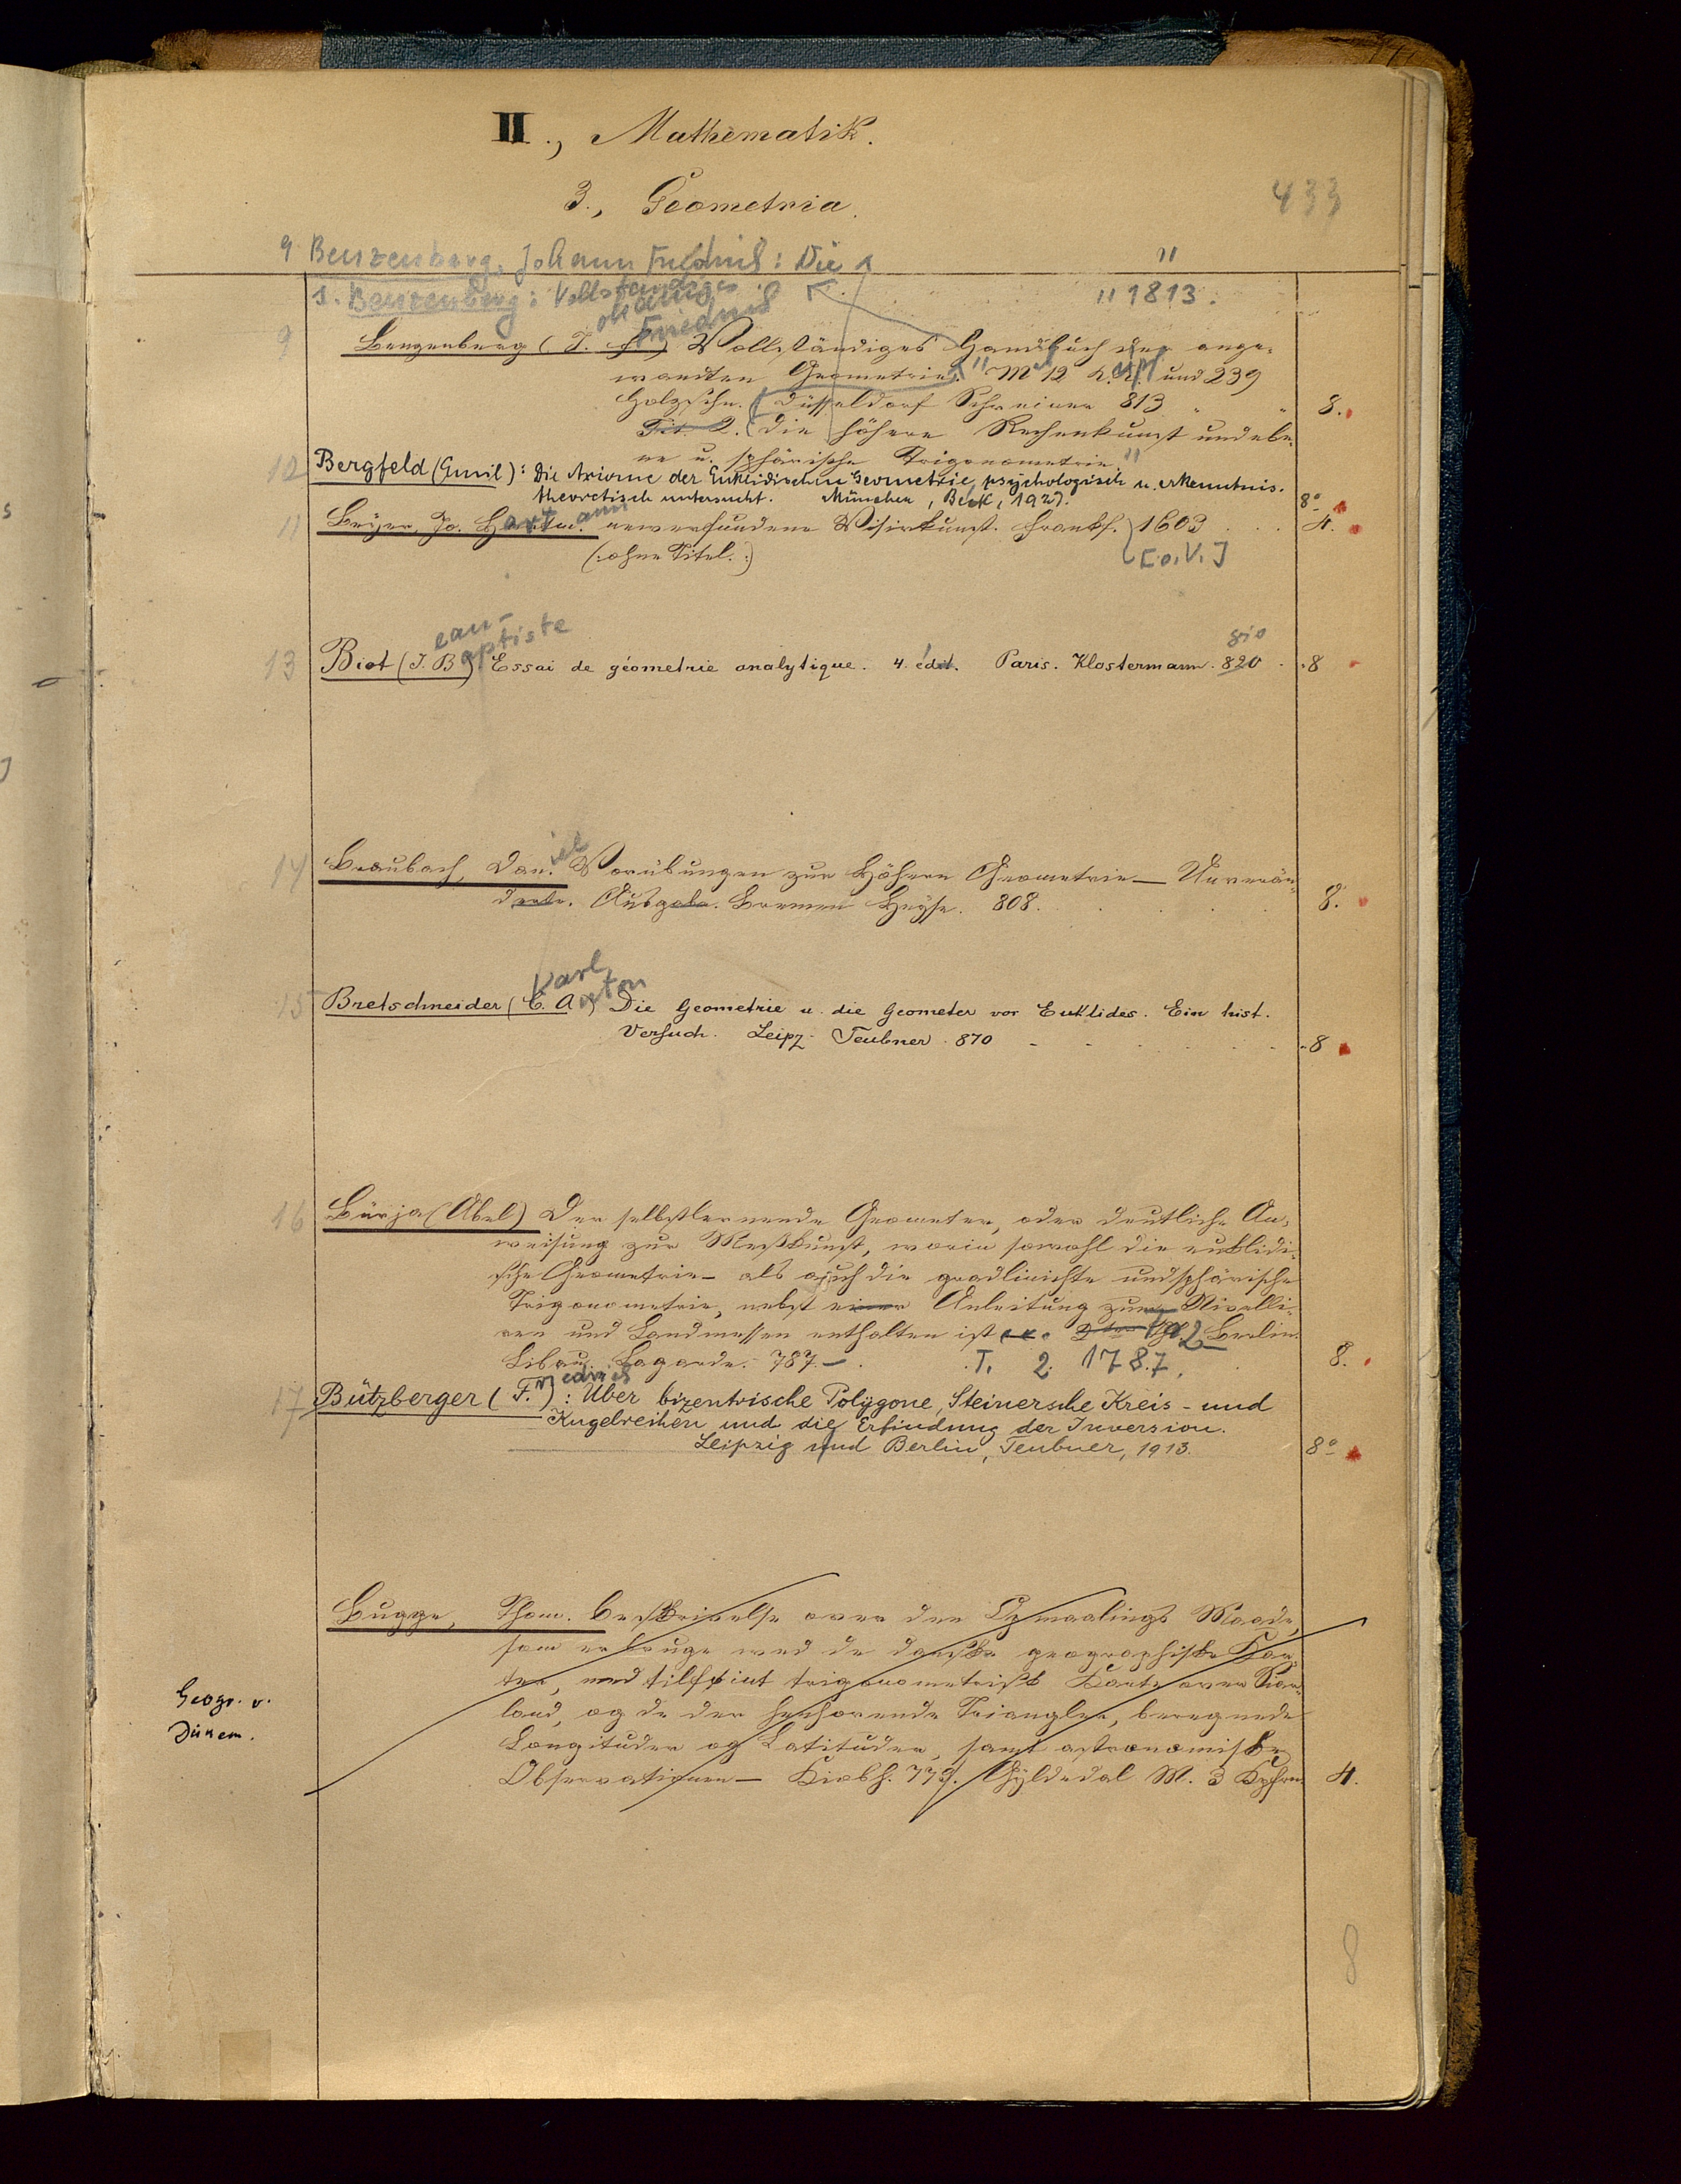 II., Mathematik.
3., Geometria.
433
9 Benzenberg, Johann Friedrich: Die
"
s. Benzenberg: Vollständiges
" 1813.
ohann
Friedrich
9 Benzenberg (J. F.) Vollständiges Handbuch der ange-
wandten Geometrie." M 12 K. K. und 239
Holzschn. (Düsseldorf Schreiner 813 " " 8.
Tit. 2. (die höhere Rechenkunst und ebe-
ne u. sphärische Trigonometrie."
12 Bergfeld (Emil): Die Axiome der Euklidischen Geometrie, psychologisch u. erkenntnis-
theoretisch untersucht. München, Beck, 1927. 8º
11 Beÿer, Jo. Hartmann. newerfundene Visirkunst. Frankf. 1603 . . 4.
(: ohne Titel. :) [o. V.]
ean-
aptiste
810
13 Biot (J. B.) Essai de géometrie analytique. 4. édit. Paris. Klostermann. 820 . 8
iel
14 Braubach, Dan. Vorübungen zur Höhern Geometrie — Unverän-
derte. Ausgabe. Bremen Heÿse. 808. . . . . 8.
Karl
nton
15 Bretschneider (C. A.) Die Geometrie u. die Geometer vor Euklides. Ein hist.
Versuch. Leipz. Teubner. 870 - - - - - 8
16 Bürja (Abel) Der selbstlernende Geometer, oder deutliche An-
weisung zur Meßkunst, worin sowohl die euklidi-
sche Geometrie als auch die gradlinichte und sphärische
Trigonometrie, nebst einer Anleitung zum Nivelli-
ren und Landmessen enthalten ist 2 Berlin.
Libau. Lagarde. 787. — . T. 2. 1787. 8.
riedrich
17 Bützberger (F.): Über bizentrische Polygone, Steinersche Kreis- und
Kugelreihen und die Erfindung der Inversion.
Leipzig und Berlin, Teubner, 1913. 8º
Bugge, Thom. Beskrivelse over den Opmaalings Maade,
som er bruge ved de danske geographiske Kar-
ter, med tilføiet trigonometrisk Karte over Siæ-
land, og de der henhorende Triangler, beregnede
Longituder og Latituder, samt astronomiske
Observationer — Kiøbh. 779. Gÿldedal M. 3 Kpfrn. 4.
Geogr. v.
Dänem.
8